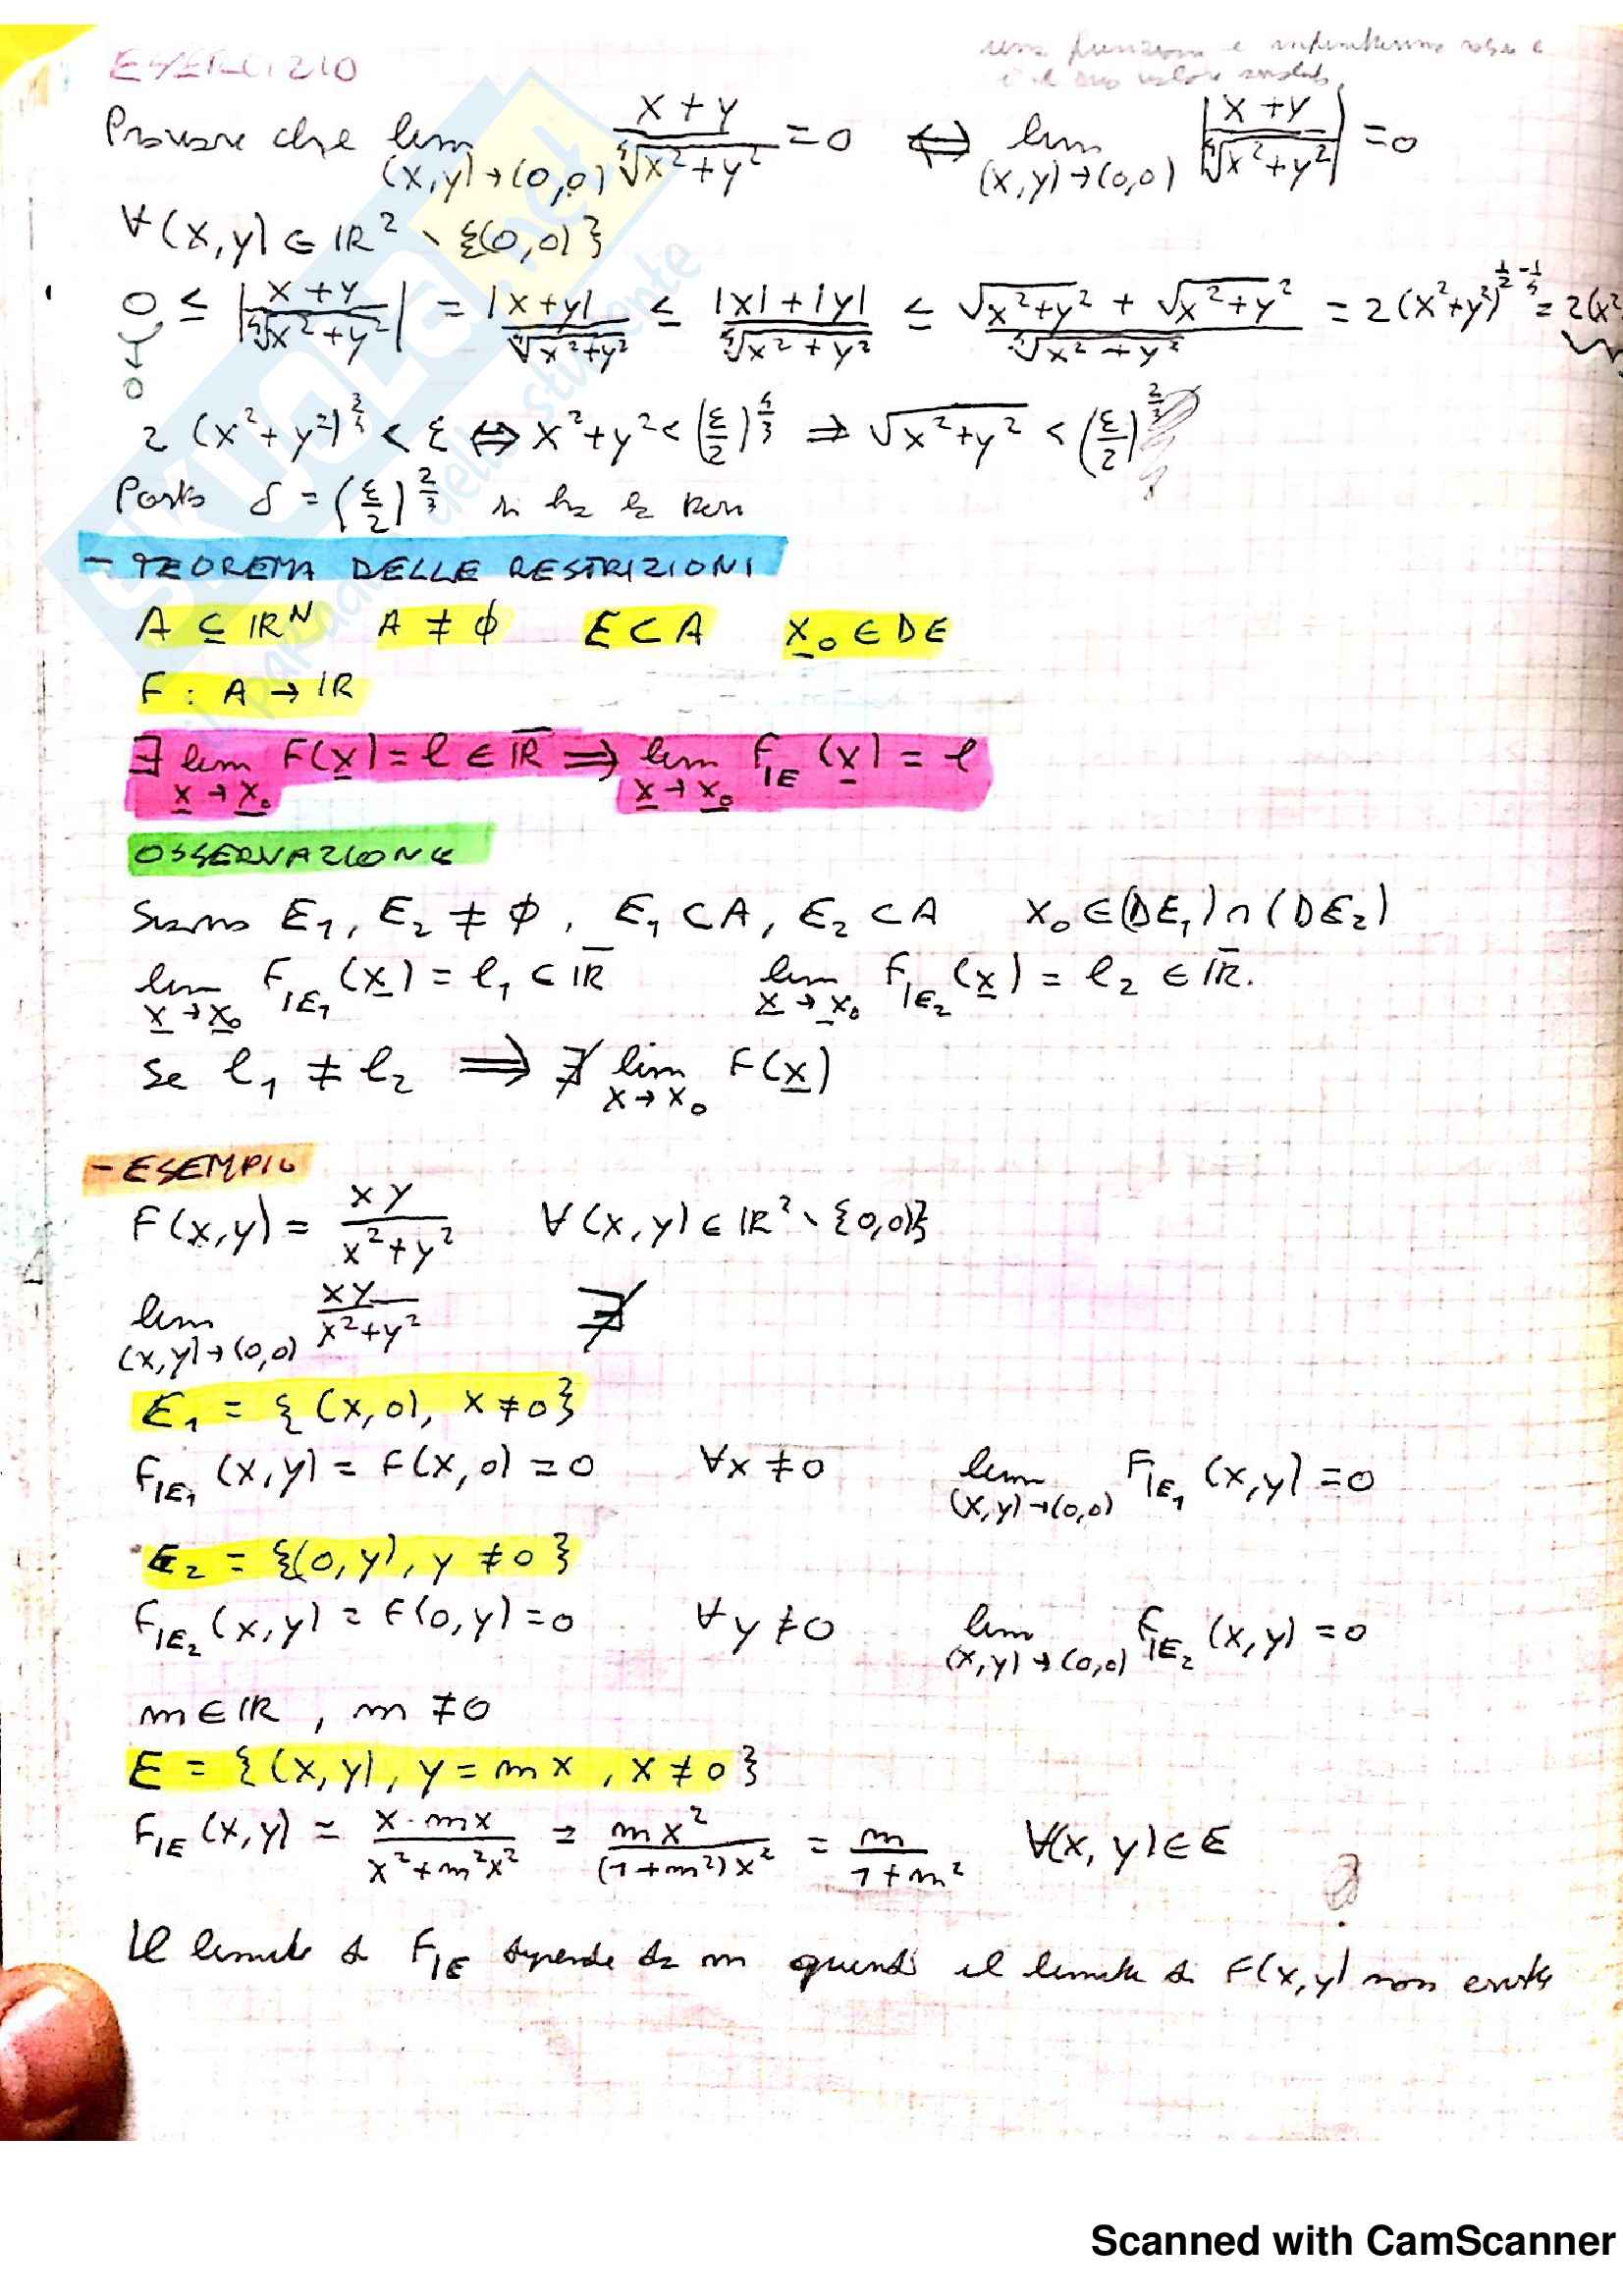 ESERCIZIO
una funzione è infinitesima
è il suo valore
Provare che lim (x,y)→(0,0) x+y / ⁵√x²+y² = 0 ⇔ lim (x,y)→(0,0) |x+y / ⁵√x²+y²| = 0
∀(x,y)∈ℝ² \ {(0,0)}
0 ≤ |x+y / ⁵√x²+y²| = |x+y| / ⁵√x²+y² ≤ |x|+|y| / ⁵√x²+y² ≤ √x²+y² + √x²+y² / ⁵√x²+y² = 2(x²+y²)^(1/2 - 1/5) = 2(x²
↓
0
2 (x²+y²) < ε ⇔ x²+y² < (ε/2) ⇒ √x²+y² < (ε/2)
Posto δ = (ε/2)^(2/3) si ha la
- TEOREMA DELLE RESTRIZIONI
A ⊆ ℝᴺ A ≠ ∅ E ⊂ A x₀ ∈ DE
F : A → ℝ
∃ lim x→x₀ F(x) = l ∈ ℝ̅ ⇒ lim x→x₀ F|E (x) = l
OSSERVAZIONE
Siano E₁, E₂ ≠ ∅, E₁ ⊂ A, E₂ ⊂ A x₀ ∈ (DE₁) ∩ (DE₂)
lim x→x₀ F|E₁ (x) = l₁ ∈ ℝ̅ lim x→x₀ F|E₂ (x) = l₂ ∈ ℝ̅.
Se l₁ ≠ l₂ ⟹ ∄ lim x→x₀ F(x)
- ESEMPIO
F(x,y) = xy / x²+y² ∀(x,y) ∈ ℝ² \ {0,0)}
lim (x,y)→(0,0) xy / x²+y² ∄
E₁ = {(x,0), x≠0}
F|E₁ (x,y) = F(x,0) = 0 ∀x ≠ 0 lim (x,y)→(0,0) F|E₁ (x,y) = 0
E₂ = {(0,y), y ≠ 0}
F|E₂ (x,y) = F(0,y) = 0 ∀y ≠ 0 lim (x,y)→(0,0) F|E₂ (x,y) = 0
m ∈ ℝ, m ≠ 0
E = {(x,y), y = mx, x ≠ 0}
F|E (x,y) = x·mx / x²+m²x² = mx² / (1+m²)x² = m / 1+m² ∀(x,y) ∈ E
Il limite di F|E dipende da m quindi il limite di F(x,y) non esiste
SKUOLA.net
Scanned with CamScanner